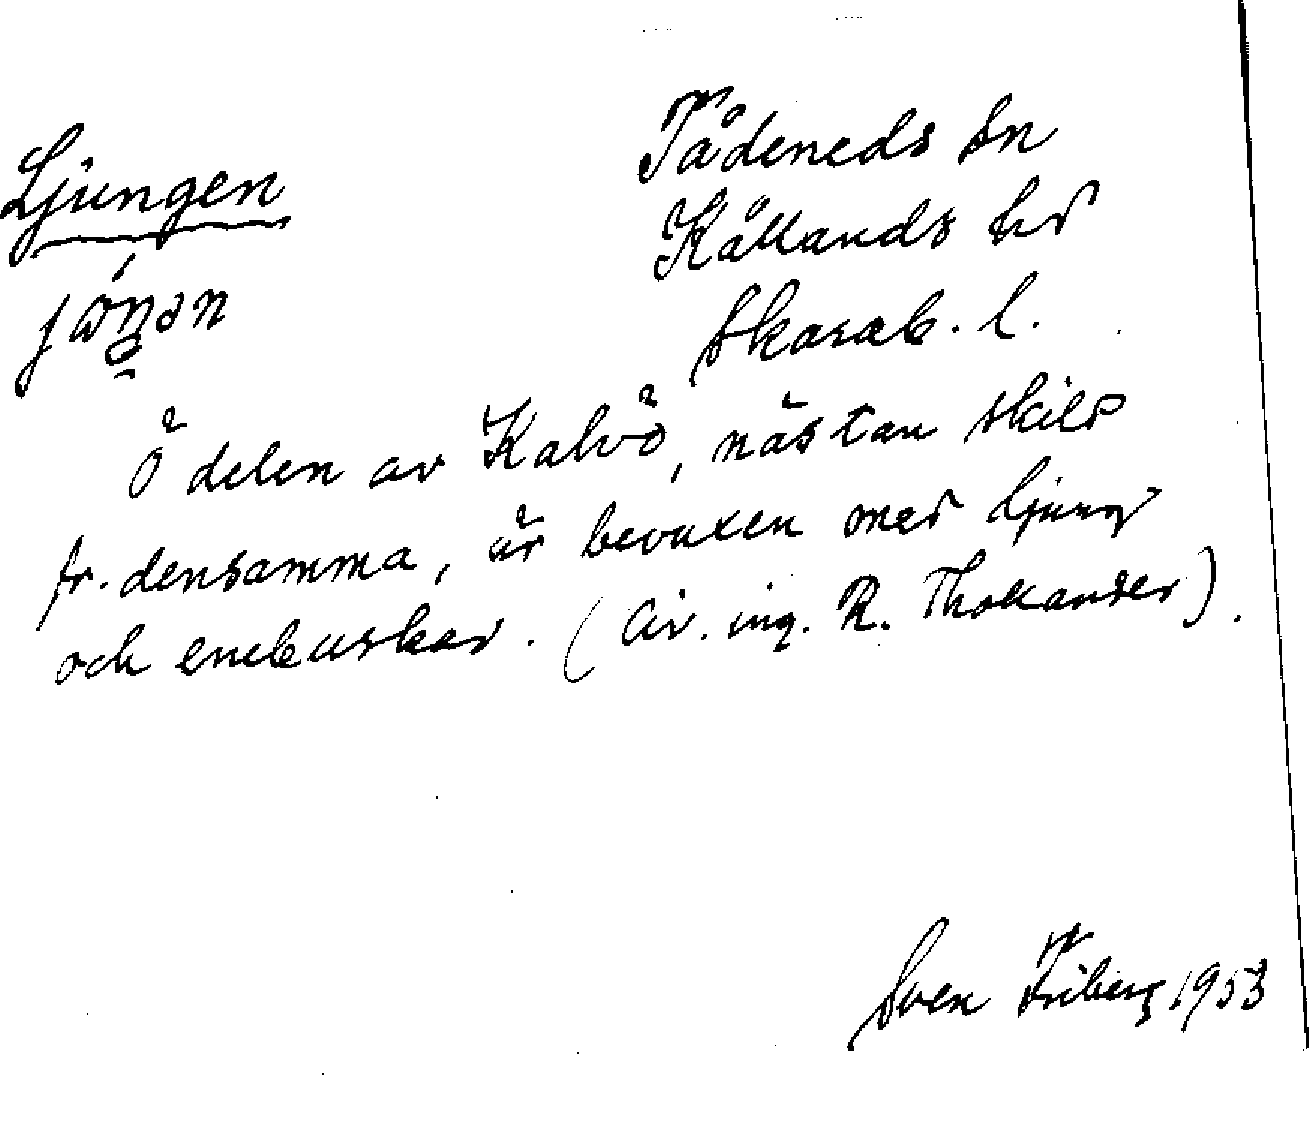 Ljungen
Tådeneds sn
Kållands hd
Skarab. l.
Ö delen av Kalvö, nästan skild
fr. densamma, är bevuxen med ljung
och enebuskar. (Civ. ing. R. Thokander).
Sven Friberg 1953